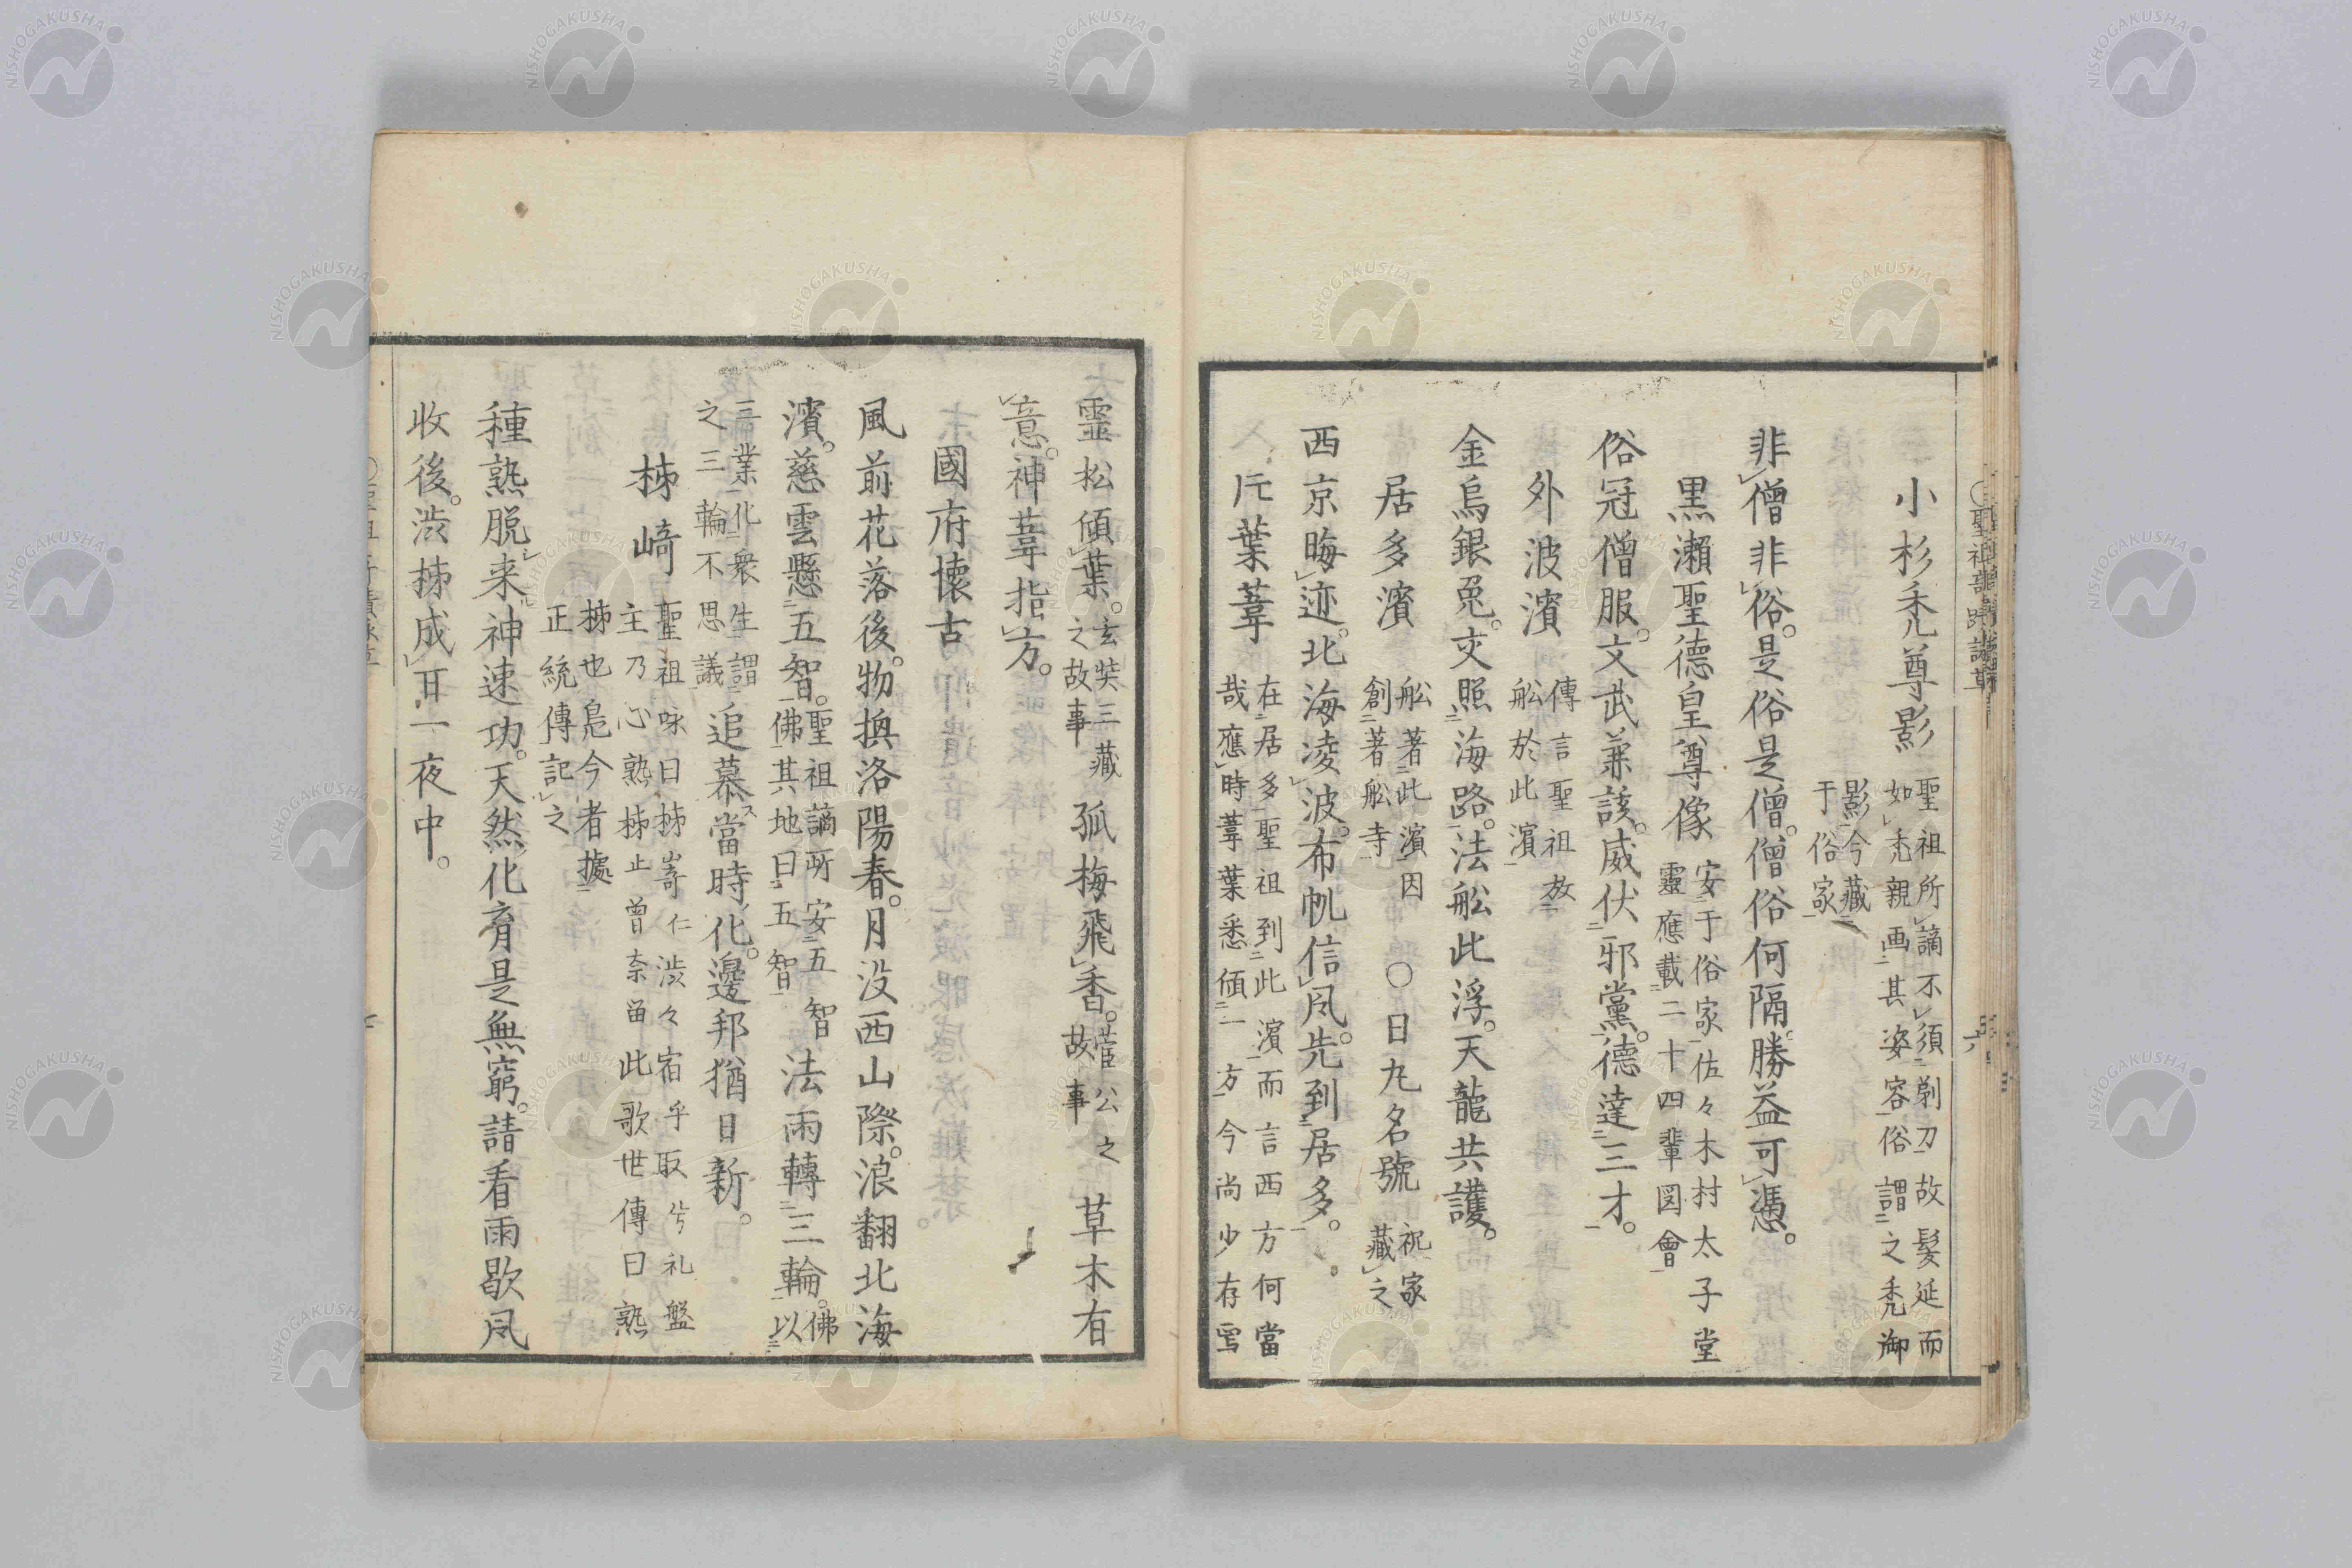 小杉禿尊影 聖祖所謫不須剃刀故髮延而
如禿親画其姿容俗謂之禿御
影今藏
于俗家
非僧非俗是俗是僧僧俗何隔勝益可憑。
黒瀬聖德皇尊像 安于俗家佐々木村太子堂
靈應載二十四輩図會
俗冠僧服。文武兼該。威伏邪黨。德達三才。
外波濱 傳言聖祖放
舩於此濱
金烏銀兎。交照海路。法舩此浮。天龍共護。
居多濱 舩著此濱因
創著舩寺 ○日九名號 祝家
藏之
西京晦迹。北海凌波。布帆信風。先到居多。
片葉葦 在居多聖祖到此濱而言西方何當
哉應時葦葉悉傾一方今尚少存焉
靈松傾葉。玄奘三藏
之故事 孤梅飛香。菅公之
故事 草木有
意。神葦指方。
國府懷古
風前花落後。物換洛陽春。月没西山際。浪翻北海
濱。慈雲懸五智。聖祖謫所安五智
佛其地曰五智 法雨轉三輪。佛以
三業化衆生謂
之三輪不思議 追慕當時化。邊邦猶日新。
柹崎 聖祖咏曰柹嵜仁渋々宿乎取兮礼盤
主乃心熟柹止曽奈留此歌世傳曰熟
柹也是今者據
正統傳記之
種熟脱来神速功。天然化育是無窮。請看雨歇風
收後。渋柹成甘一夜中。